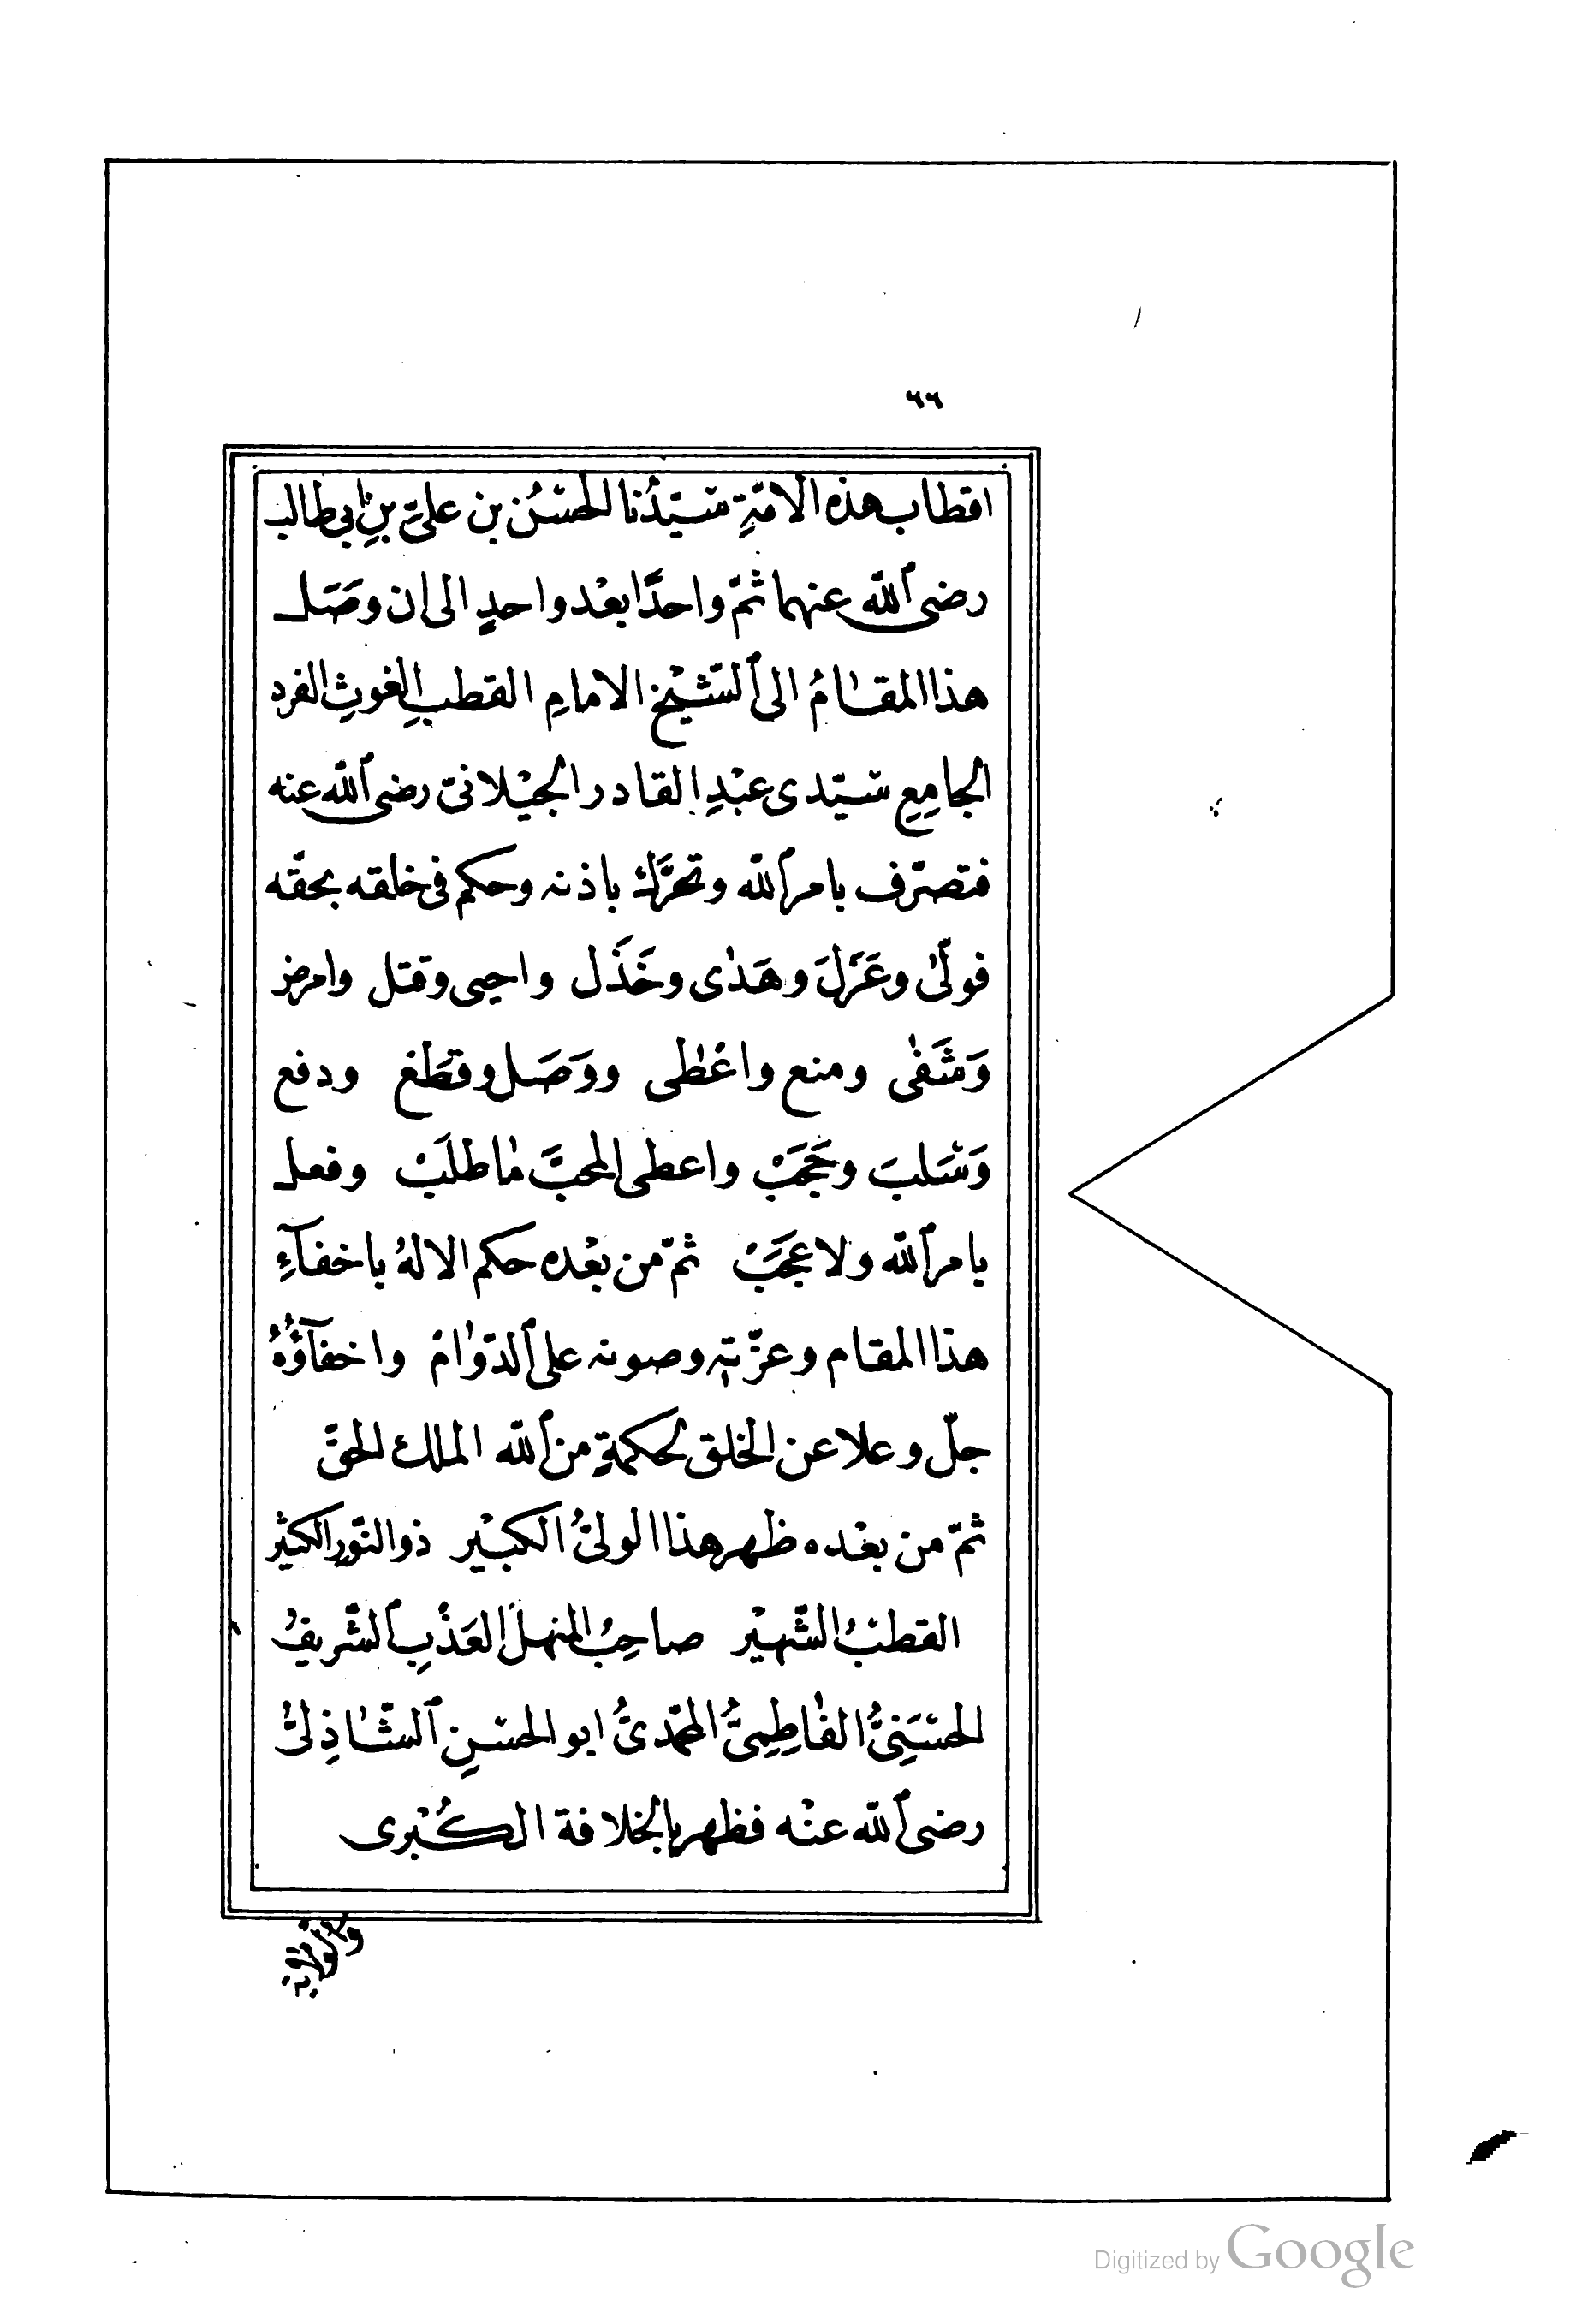 ٦٦
اقطاب هذه الامّةِ سَيّدُنا الحسَنُ بن علىّ بنِ ابى طالب
رضى ٱللّه عنهما ثمّ واحدًا بعْد واحدٍ الى ان وصَل
هذا المقامُ الى ٱلشّيْخ الامامِ القطبِ الغوثِ الفرد
الجامِعِ سَيّدى عبْدِ القادر الجيْلانىّ رضى ٱللّه عنه
فتصرّف بامر ٱللّه وتحرَّك باذنه وحكم فى خلقه بحقّه
فولّىٰ وعَزَلَ وهَدٰى وخَذَل واحيى وقتل وامرض
وَشَفٰى ومنع واعْطٰى ووَصَل وقطَع ودفع
وَسَلبَ وحَجَبْ واعطى المحبَّ مٰا طلَبْ وفعل
بامر ٱللّه ولا عجَبْ ثمّ من بعْده حكم الالهُ باخفآءِ
هذا المقام وعزّتهِ وصونه على ٱلدّوٰامْ واخفآؤُهُ
جلّ وعلا عن الخلق لحكمةٍ من ٱللّه الملك الحقّ
ثمّ من بعْده ظهر هذا الولىُّ الكبيْر ذو النّورِ الكثيْر
القطبُ الشّهيْر صاحِبُ المنهلِ العَذْبِ ٱلشّريفُ
الحسَنِىُّ الفٰاطِمِىُّ المحمّدىُّ ابو الحسَنِ ٱلشّاذِلىُّ
رضى ٱللّه عنْه فظهر بالخلافة الكُبْرى
والولاية
Digitized by Google